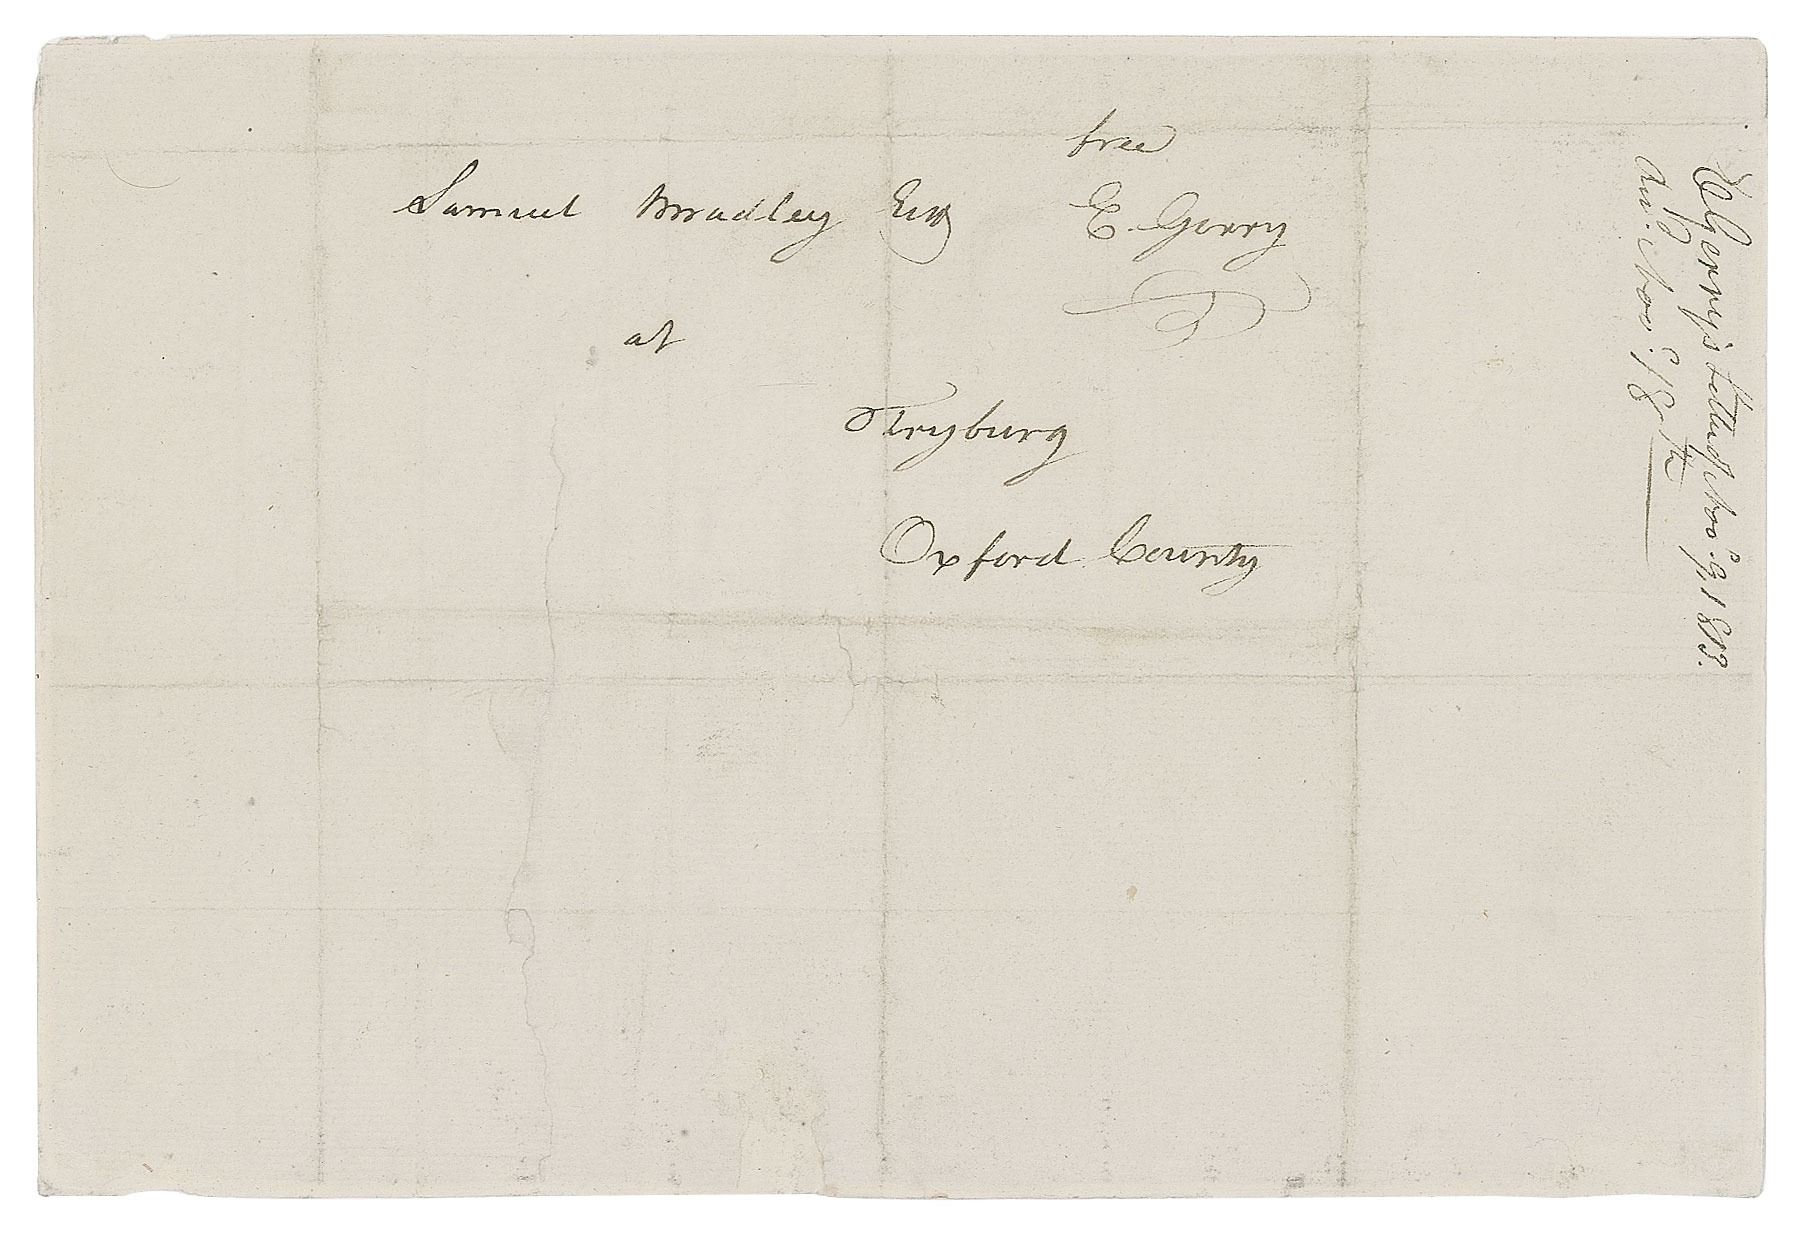 free
Samuel Bradley Esq
E. Gerry
at
Fryburg
Oxford County
E Gerry's letter Nov. 9, 1813.
An. Nov. 18th